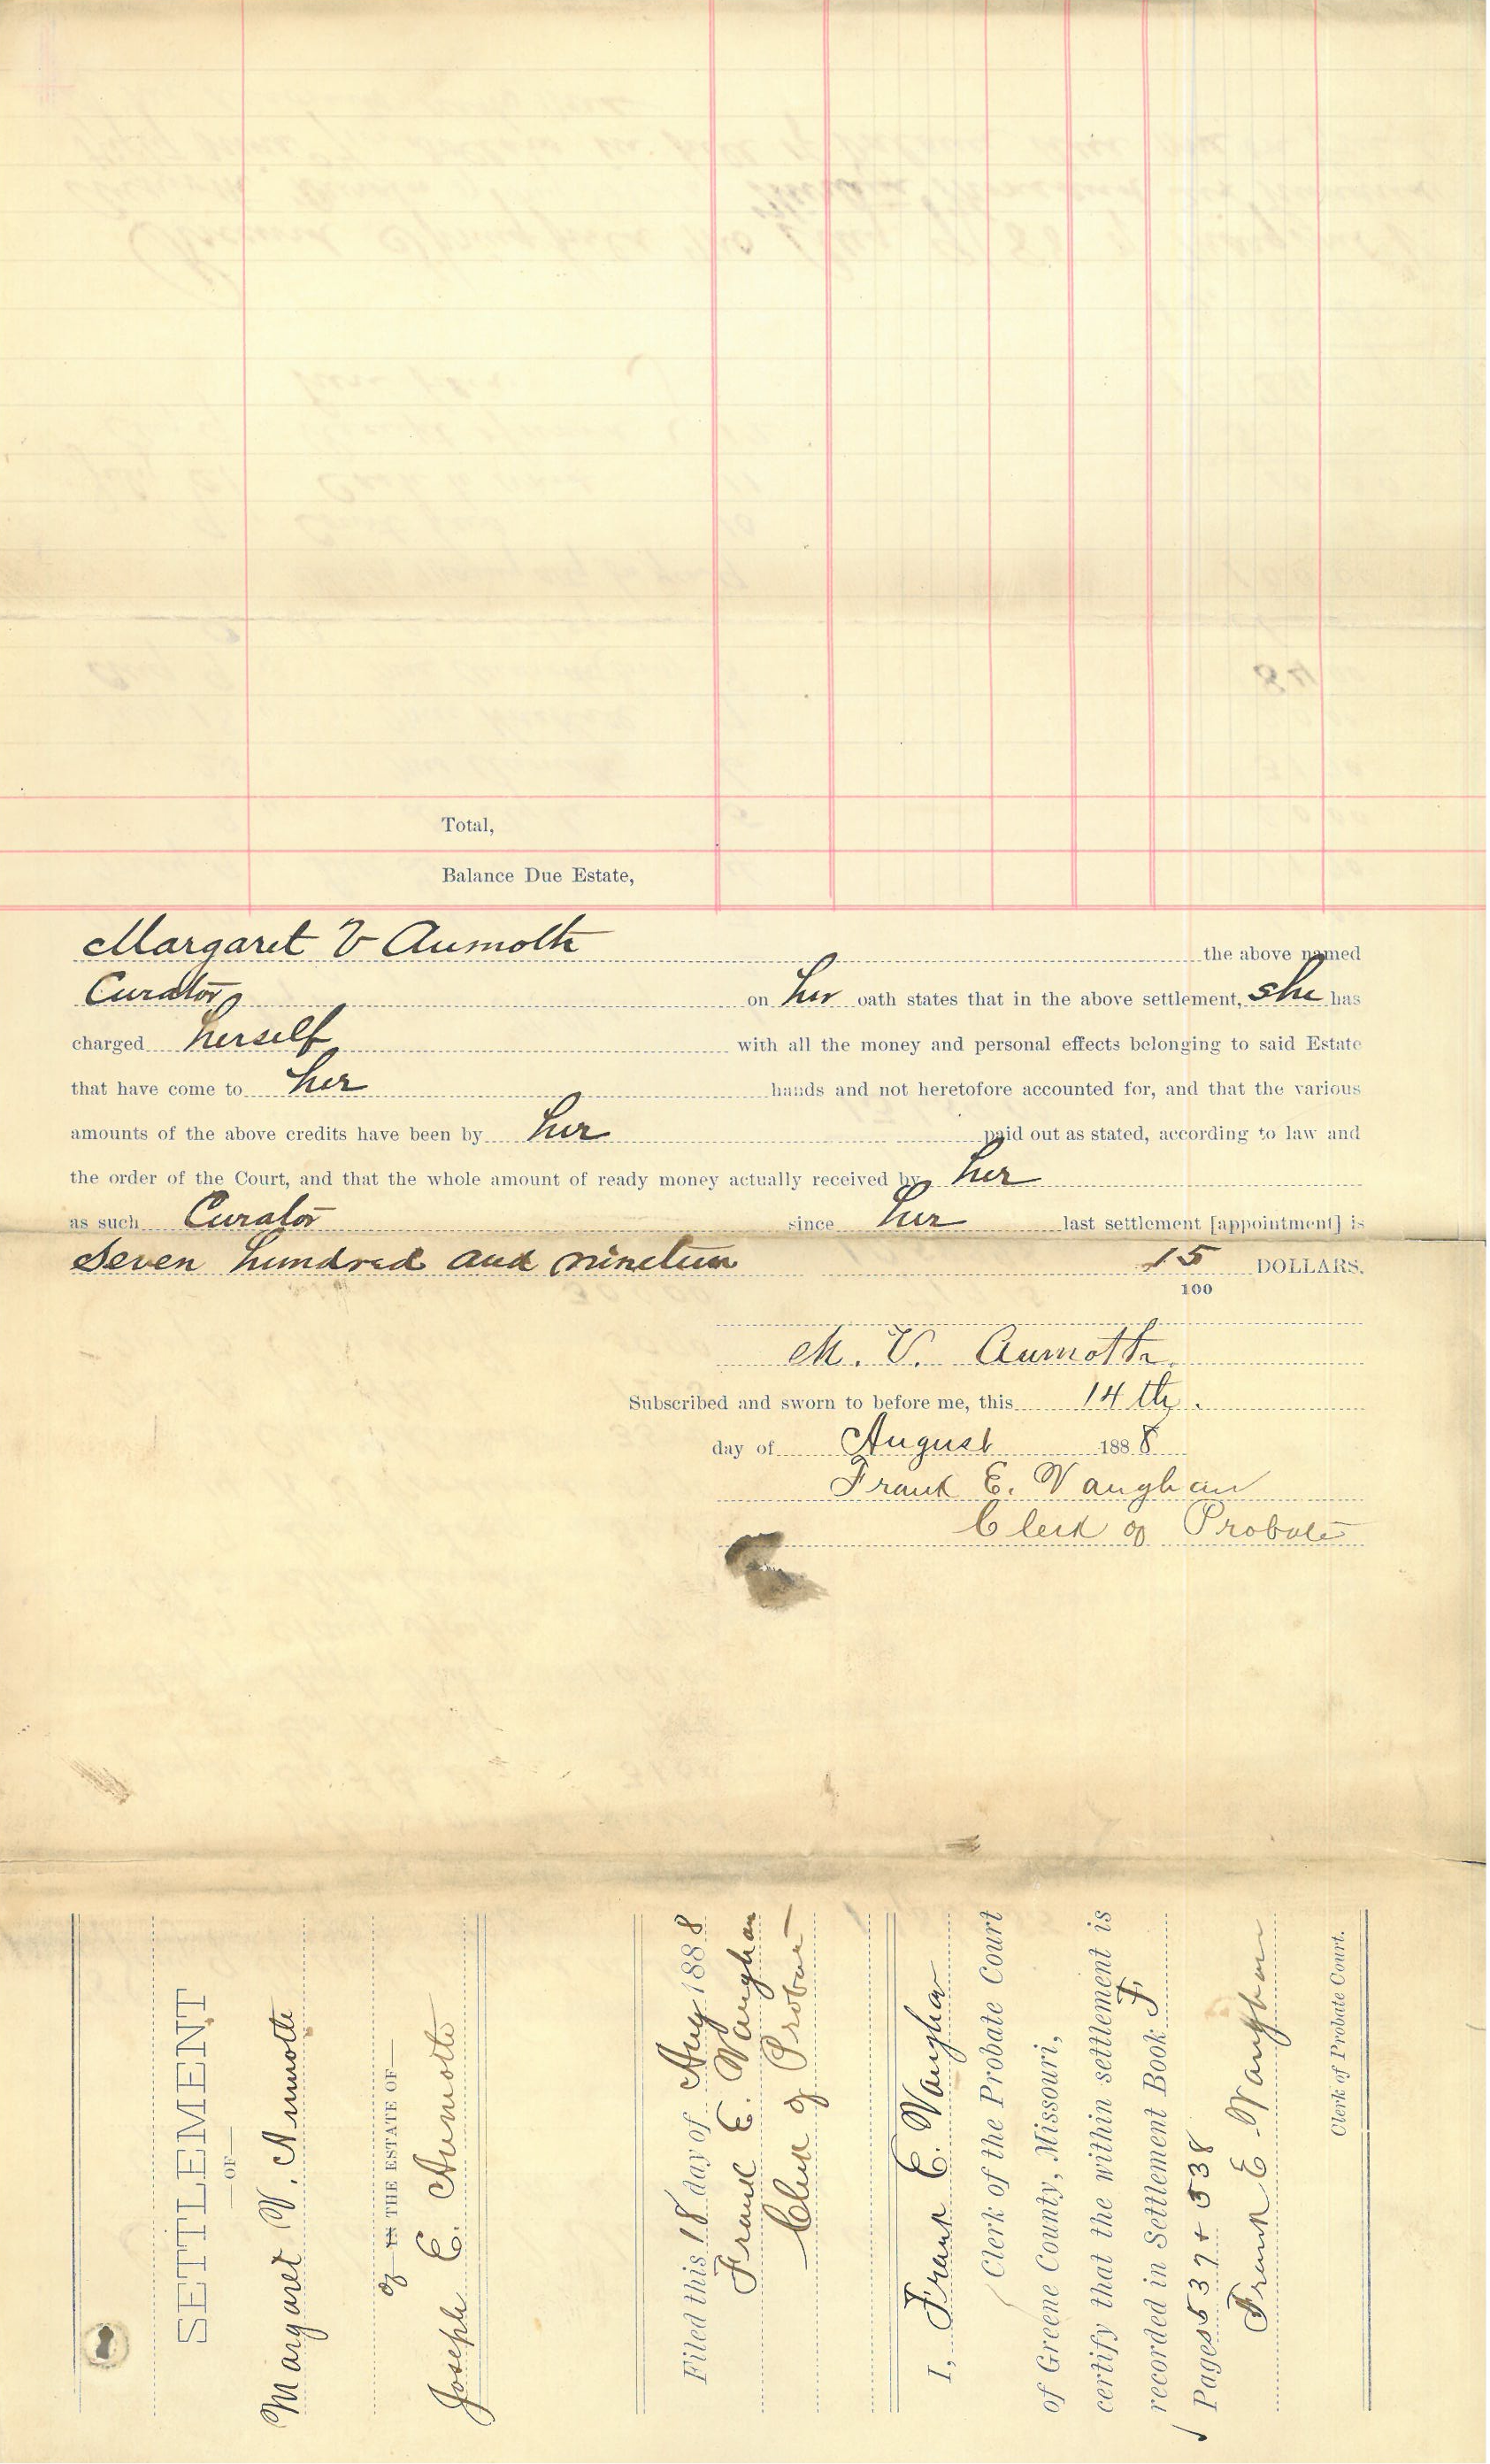 Total,
Balance Due Estate,
Margaret V Aumoth the above named
Curator on her oath states that in the above settlement, she has
charged herself with all the money and personal effects belonging to said Estate
that have come to her hands and not heretofore accounted for, and that the various
amounts of the above credits have been by her paid out as stated, according to law and
the order of the Court, and that the whole amount of ready money actually received by her
as such Curator since her last settlement [appointment] is
Seven hundred and nineteen 15 DOLLARS.
100
M. V. Aumoth
Subscribed and sworn to before me, this 14th.
day of August 1888
Frank E. Vaughan
Clerk of Probate
SETTLEMENT
—OF—
Margaret V. Aumoth
of IN THE ESTATE OF—
Joseph E. Aumoth
Filed this 18 day of Aug 1888
Frank E. Vaughan
Clerk of Probate
I, Frank E. Vaughan
Clerk of the Probate Court
of Greene County, Missouri,
certify that the within settlement is
recorded in Settlement Book F
Pages 537 + 538
Frank E. Vaughan
Clerk of Probate Court.